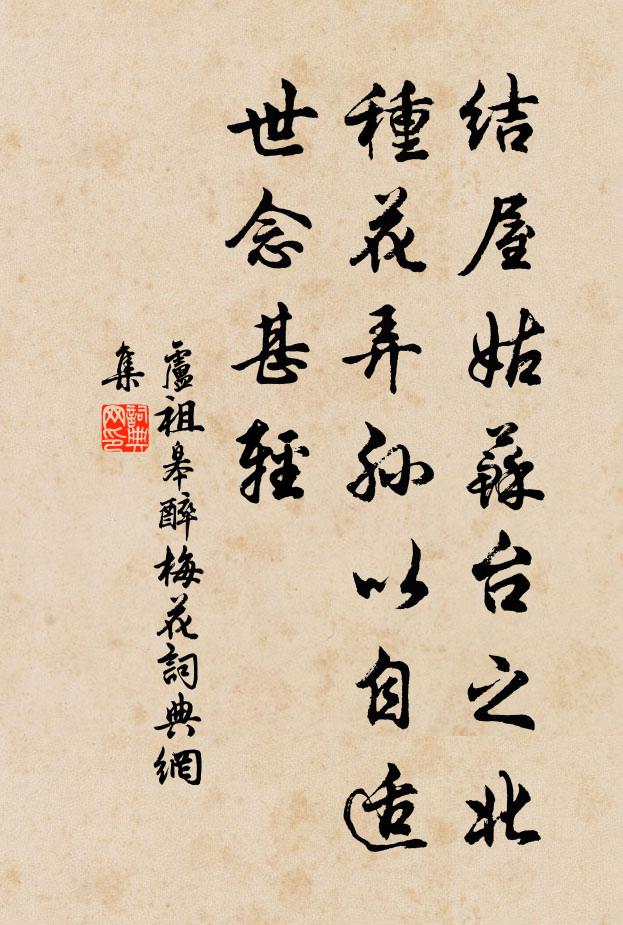 结屋姑蘇台之北
種花弄孫以自适
世念甚輕
盧祖皋醉梅花詞典網
集
詞典网印